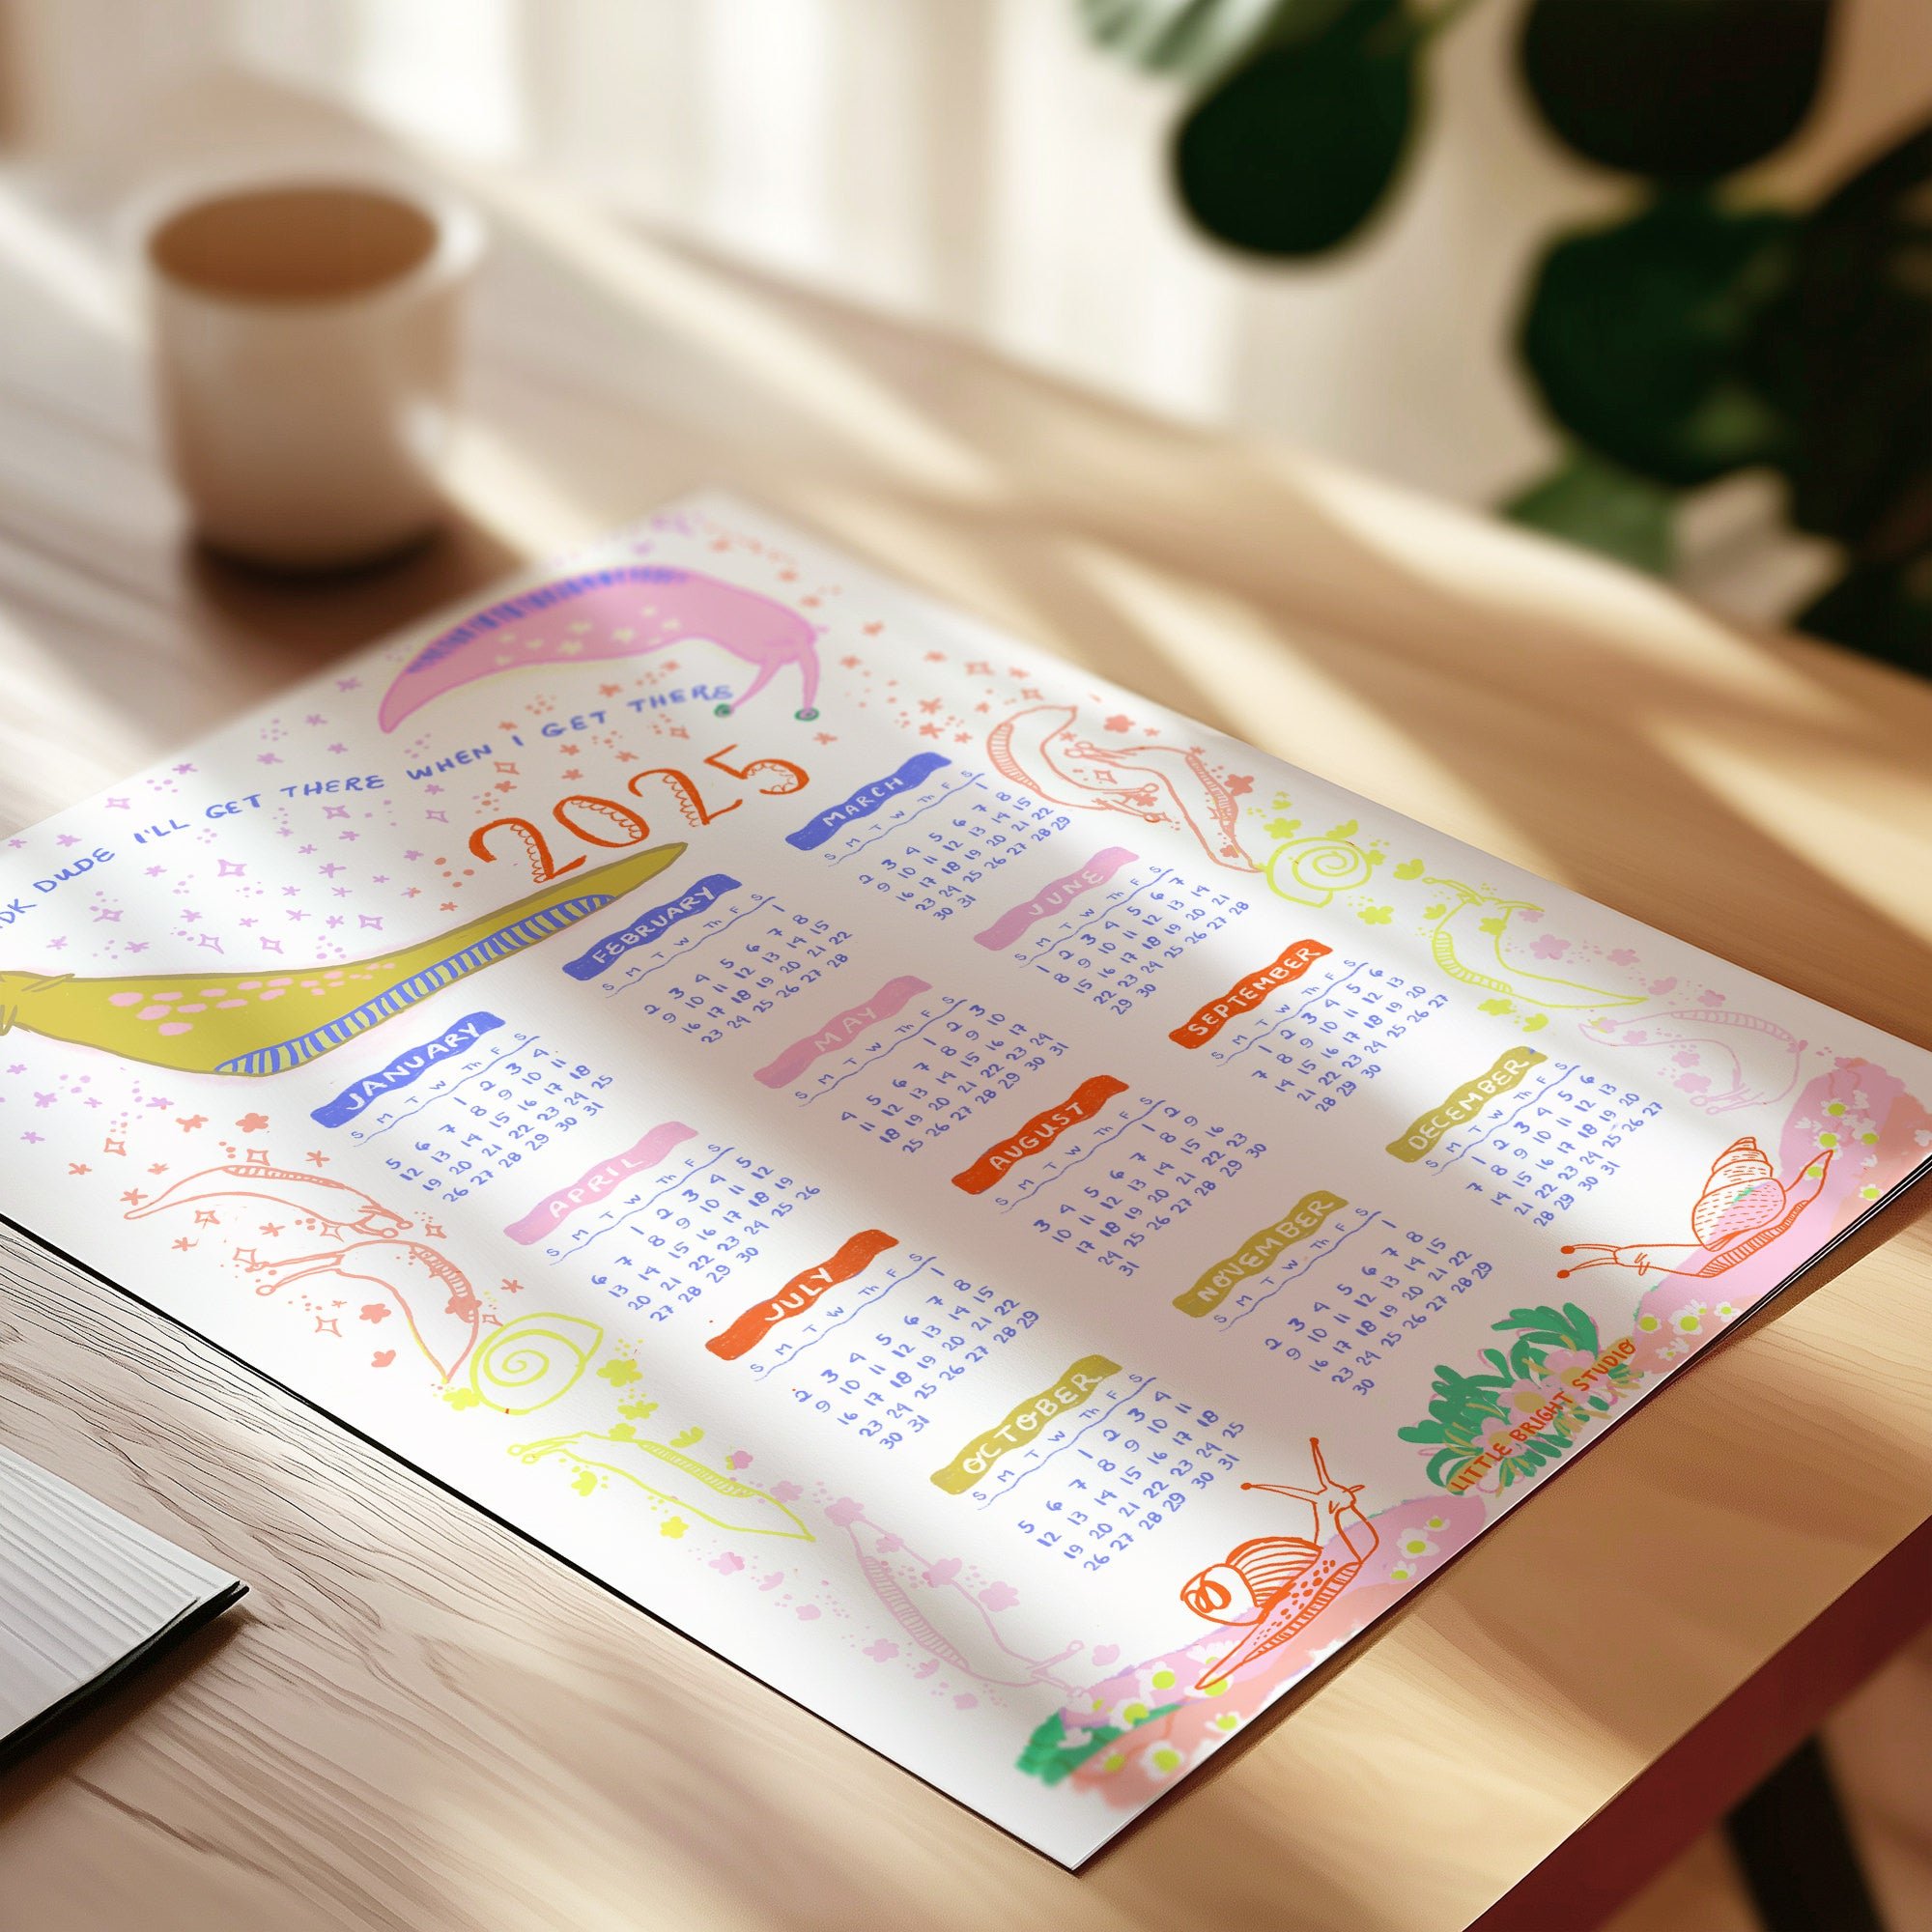 IDK DUDE I'LL GET THERE WHEN I GET THERE
2025
JANUARY
S M T W Th F S
1 2 3 4
5 6 7 8 9 10 11
12 13 14 15 16 17 18
19 20 21 22 23 24 25
26 27 28 29 30 31
FEBRUARY
S M T W Th F S
1
2 3 4 5 6 7 8
9 10 11 12 13 14 15
16 17 18 19 20 21 22
23 24 25 26 27 28
MARCH
S M T W Th F S
1
2 3 4 5 6 7 8
9 10 11 12 13 14 15
16 17 18 19 20 21 22
23 24 25 26 27 28 29
30 31
APRIL
S M T W Th F S
1 2 3 4 5
6 7 8 9 10 11 12
13 14 15 16 17 18 19
20 21 22 23 24 25 26
27 28 29 30
MAY
S M T W Th F S
1 2 3
4 5 6 7 8 9 10
11 12 13 14 15 16 17
18 19 20 21 22 23 24
25 26 27 28 29 30 31
JUNE
S M T W Th F S
1 2 3 4 5 6 7
8 9 10 11 12 13 14
15 16 17 18 19 20 21
22 23 24 25 26 27 28
29 30
JULY
S M T W Th F S
1
2 3 4 5 6 7 8
9 10 11 12 13 14 15
16 17 18 19 20 21 22
23 24 25 26 27 28 29
30 31
AUGUST
S M T W Th F S
1 2
3 4 5 6 7 8 9
10 11 12 13 14 15 16
17 18 19 20 21 22 23
24 25 26 27 28 29 30
31
SEPTEMBER
S M T W Th F S
1 2 3 4 5 6
7 8 9 10 11 12 13
14 15 16 17 18 19 20
21 22 23 24 25 26 27
28 29 30
OCTOBER
S M T W Th F S
1 2 3 4
5 6 7 8 9 10 11
12 13 14 15 16 17 18
19 20 21 22 23 24 25
26 27 28 29 30 31
NOVEMBER
S M T W Th F S
1
2 3 4 5 6 7 8
9 10 11 12 13 14 15
16 17 18 19 20 21 22
23 24 25 26 27 28 29
30
DECEMBER
S M T W Th F S
1 2 3 4 5 6
7 8 9 10 11 12 13
14 15 16 17 18 19 20
21 22 23 24 25 26 27
28 29 30 31
LITTLE BRIGHT STUDIO